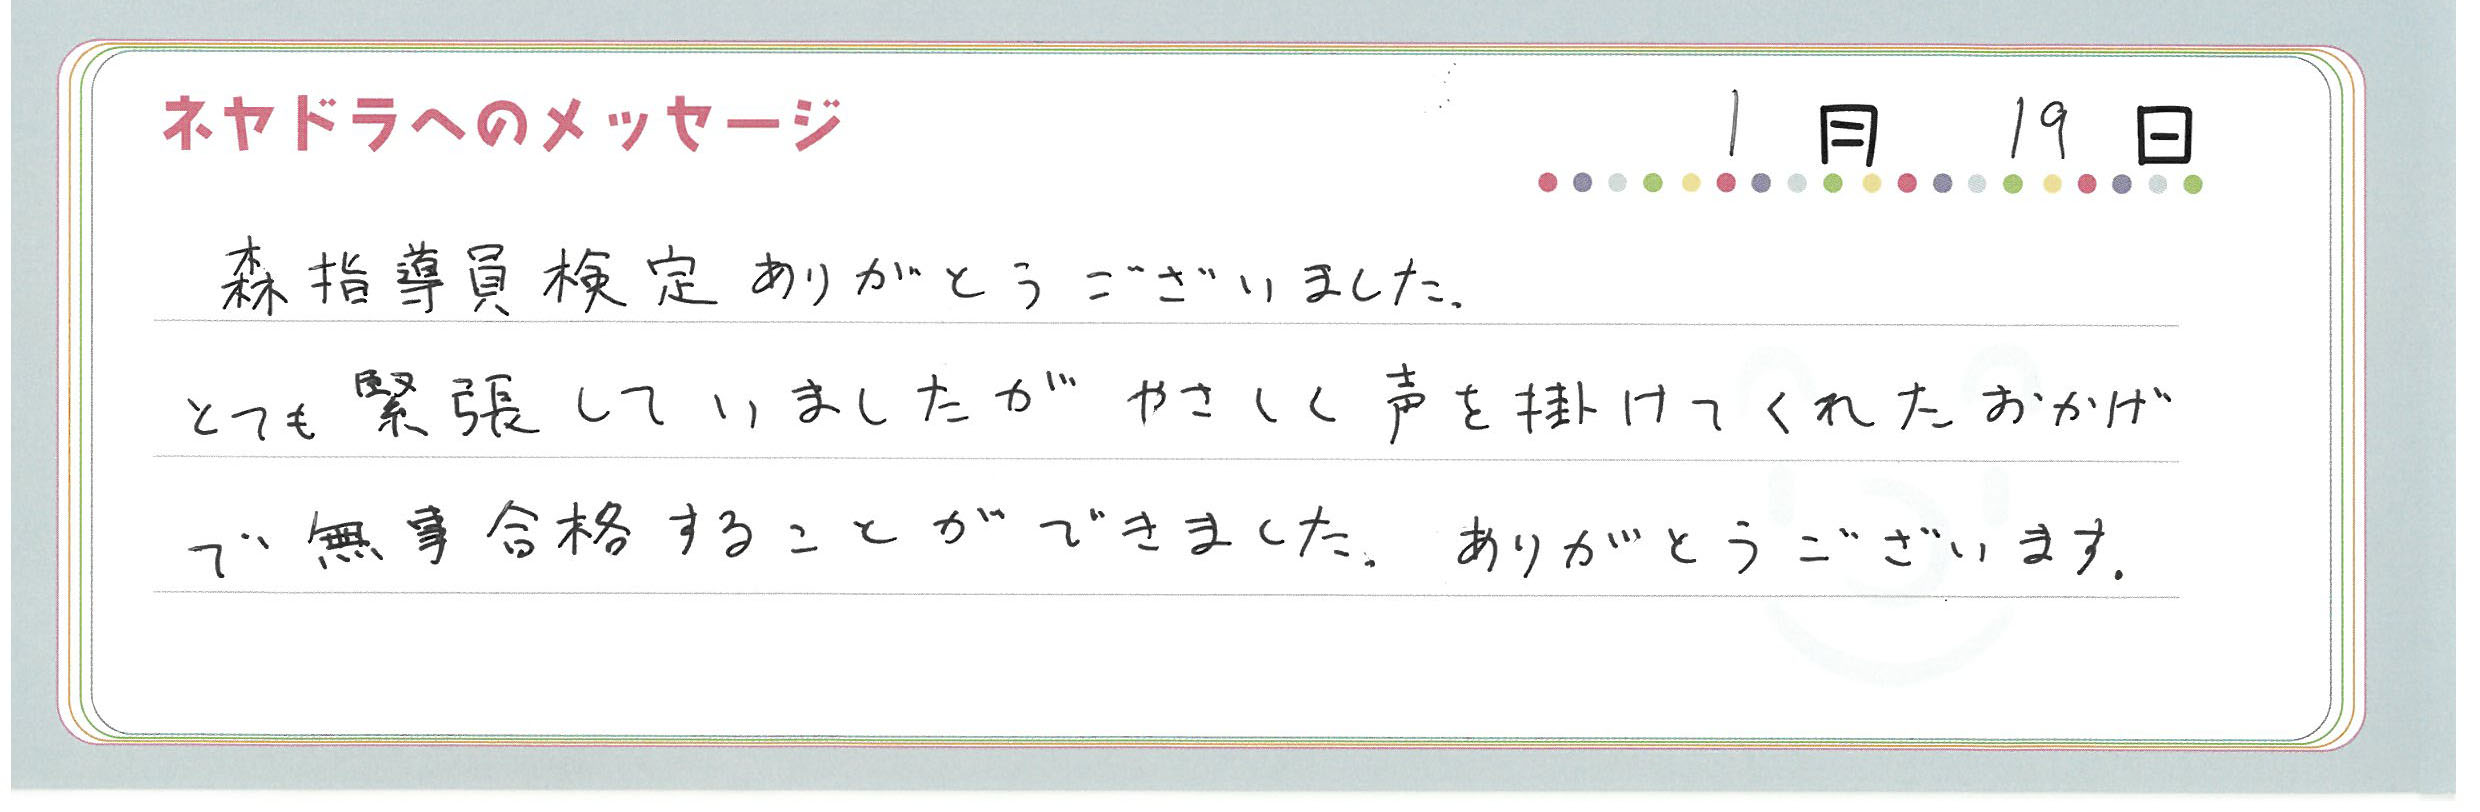 ネヤドラへのメッセージ
1月 19日
森指導員検定ありがとうございました。
とても緊張していましたがやさしく声を掛けてくれたおかげ
で無事合格することができました。ありがとうございます.